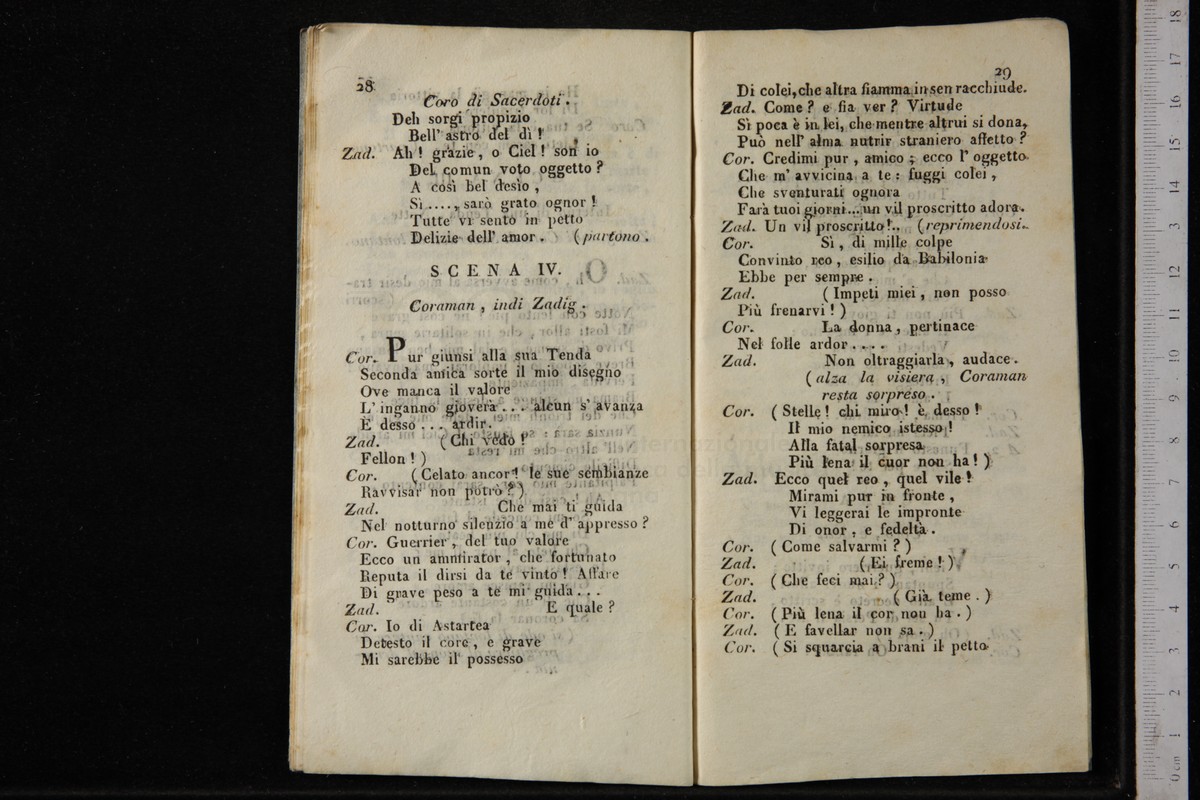 28
Coro di Sacerdoti.
Deh sorgi propizio
Bell' astro del dì!
Zad. Ah! grazie, o Ciel! son io
Del comun voto oggetto?
A così bel desìo,
Sì...., sarò grato ognor!
Tutte vi sento in petto
Delizie dell' amor. (partono.
SCENA IV.
Coraman, indi Zadig.
Cor. Pur giunsi alla sua Tenda
Seconda amica sorte il mio disegno
Ove manca il valore
L' inganno gioverà... alcun s' avanza
È desso... ardir.
Zad. (Chi vedo!
Fellon!)
Cor. (Celato ancor! le sue sembianze
Ravvisar non potrò?)
Zad. Che mai ti guida
Nel notturno silenzio a me d' appresso?
Cor. Guerrier, del tuo valore
Ecco un ammirator, che fortunato
Reputa il dirsi da te vinto! Affare
Di grave peso a te mi guida...
Zad. E quale?
Cor. Io di Astartea
Detesto il core, e grave
Mi sarebbe il possesso
29
Di colei, che altra fiamma in sen racchiude.
Zad. Come? e fia ver? Virtude
Sì poca è in lei, che mentre altrui si dona,
Può nell' alma nutrir straniero affetto?
Cor. Credimi pur, amico; ecco l' oggetto
Che m' avvicina a te: fuggi colei,
Che sventurati ognora
Farà tuoi giorni...un vil proscritto adora.
Zad. Un vil proscritto!.. (reprimendosi.
Cor. Sì, di mille colpe
Convinto reo, esilio da Babilonia
Ebbe per sempre.
Zad. (Impeti miei, non posso
Più frenarvi!)
Cor. La donna, pertinace
Nel folle ardor....
Zad. Non oltraggiarla, audace.
(alza la visiera, Coraman
resta sorpreso.
Cor. (Stelle! chi miro! è desso!
Il mio nemico istesso!
Alla fatal sorpresa
Più lena il cuor non ha!)
Zad. Ecco quel reo, quel vile!
Mirami pur in fronte,
Vi leggerai le impronte
Di onor, e fedeltà.
Cor. (Come salvarmi?)
Zad. (Ei freme!)
Cor. (Che feci mai?)
Zad. (Già teme.)
Cor. (Più lena il cor non ha.)
Zad. (E favellar non sa.)
Cor. (Si squarcia a brani il petto